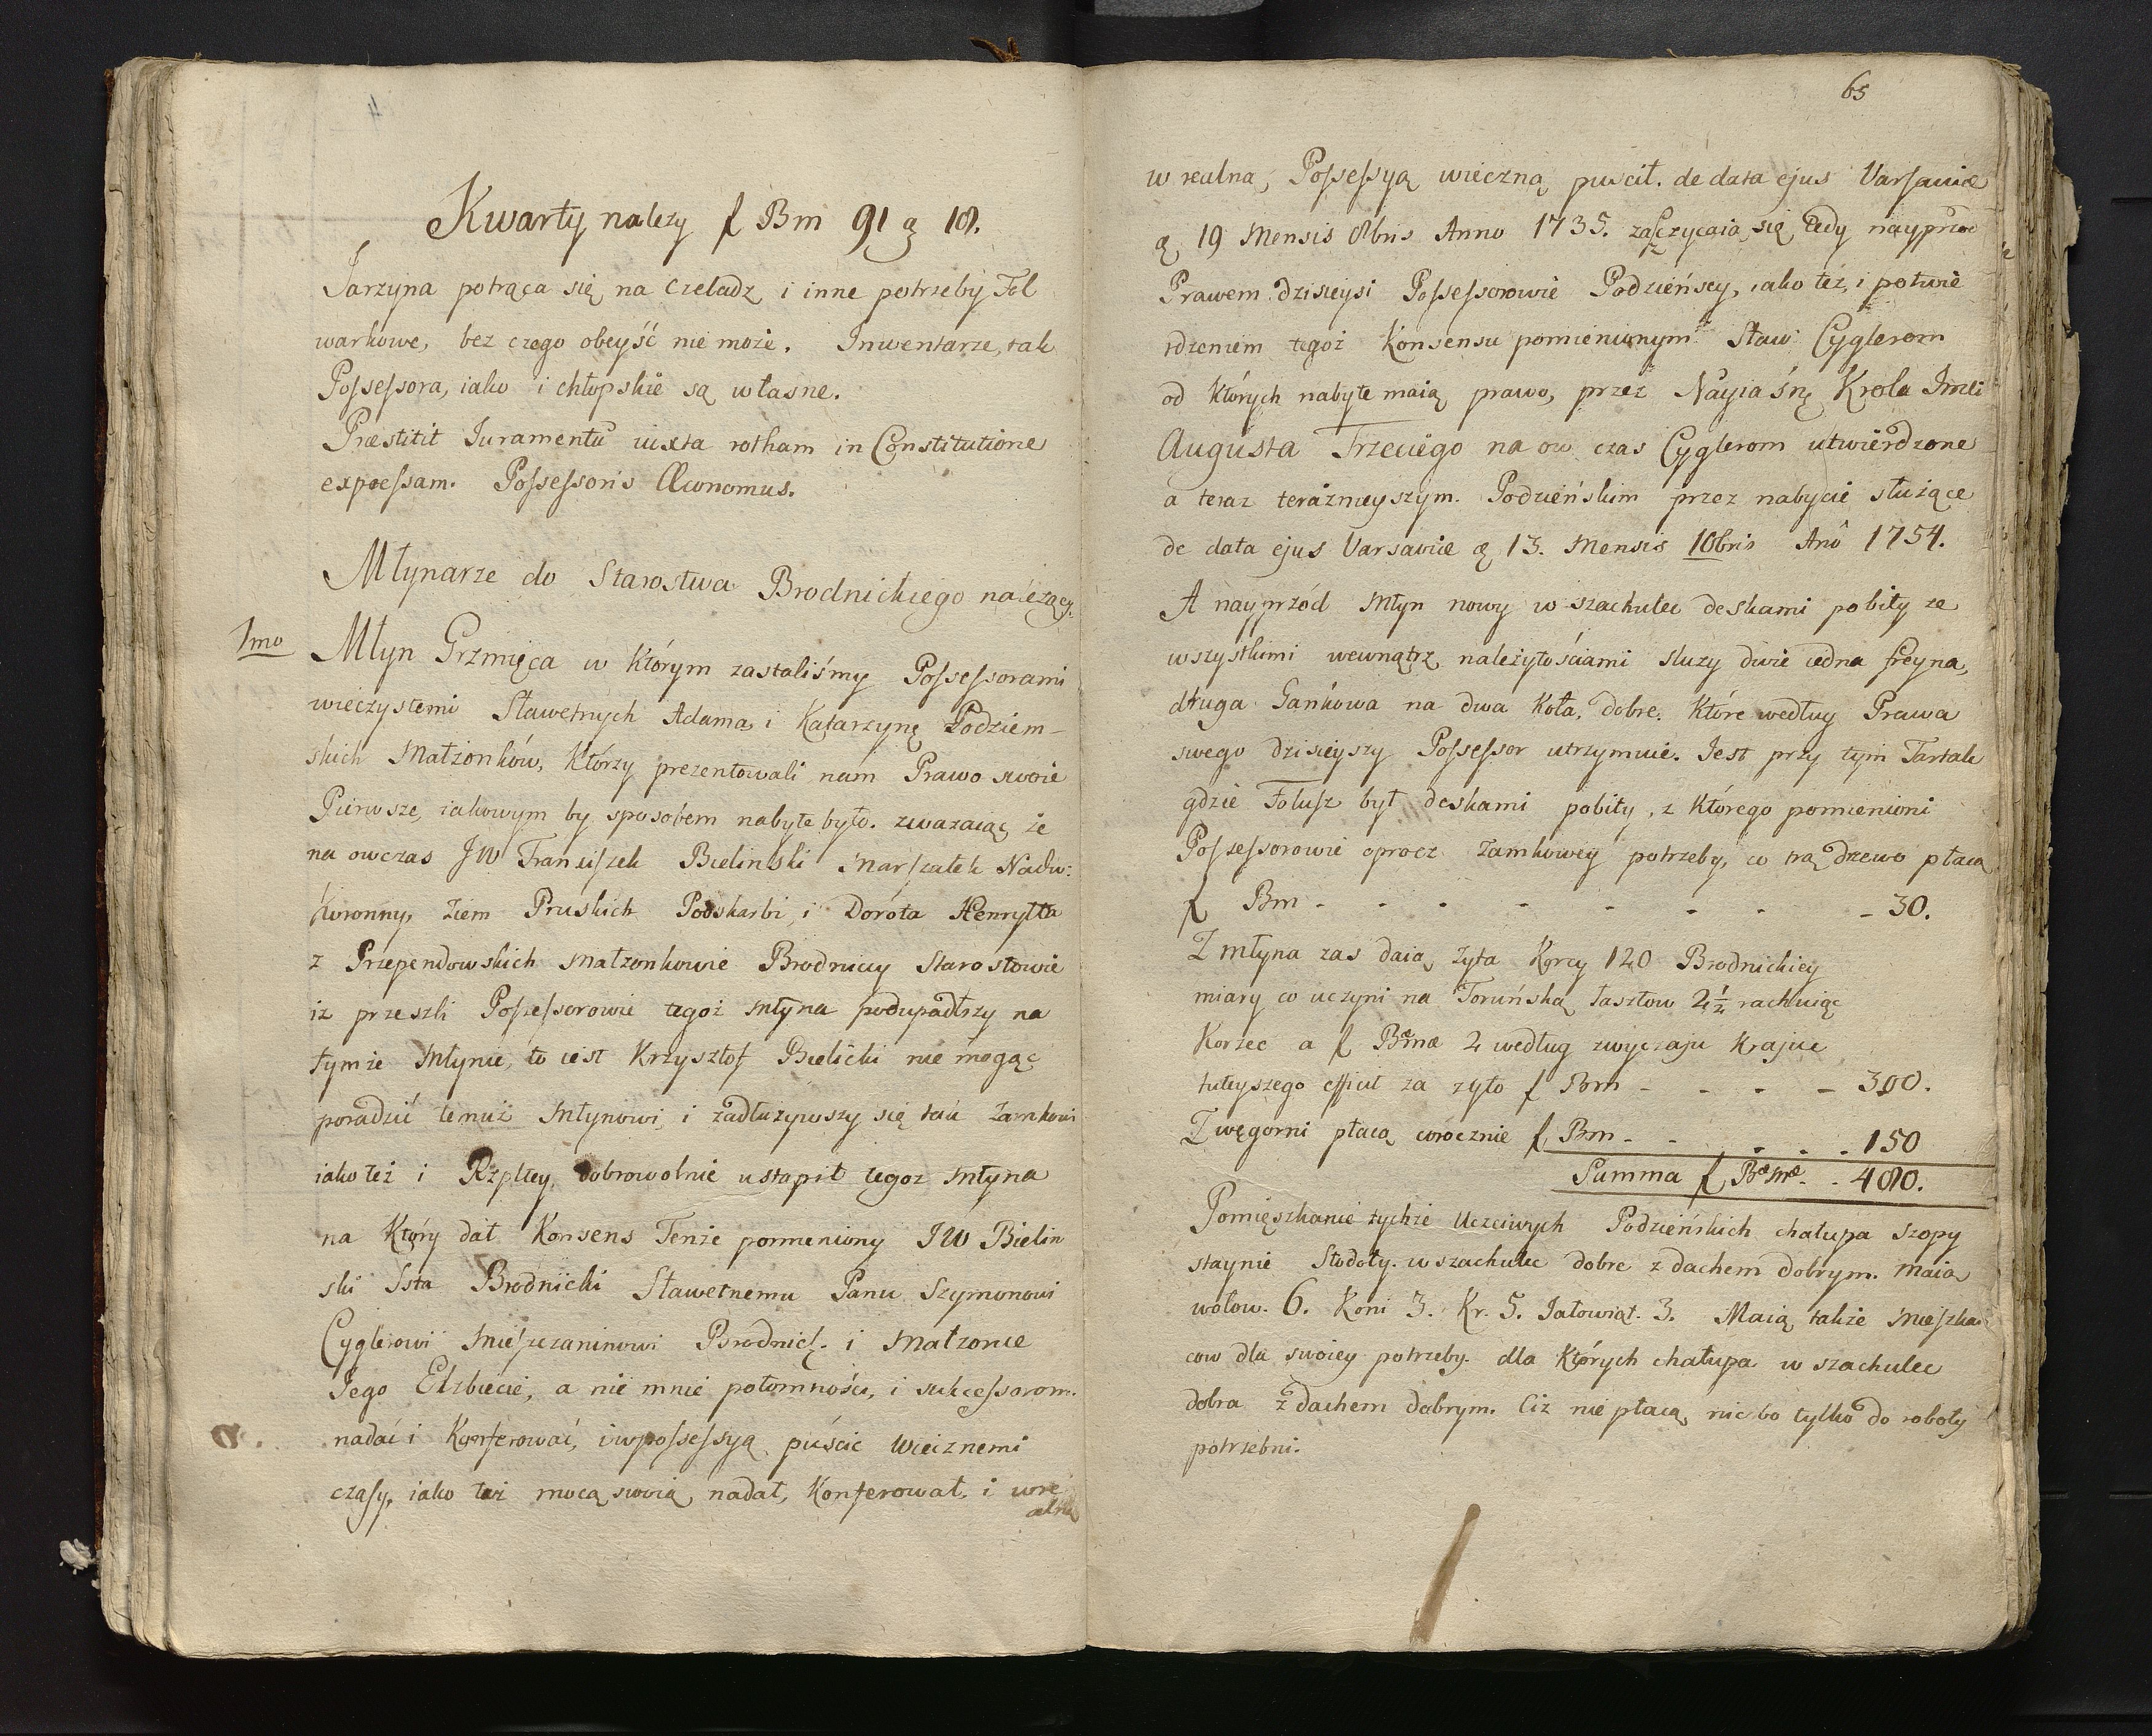 Kwarty nalezy f Bm 91 g 18.
Jarzyna potrąca się na czeladz i inne potrzeby Fol
warkowe, bez czego obeyść nie może. Inwentarze, tak
Possessora, iako i chłopskie są własne.
Præstitit Iuramentū iuxta rotham in Constitutione
expressam. Possessoris Œconomus.
Młynarze do Starostwa Brodnickiego należący.
1mo Młyn Grzmięca w którym zastaliśmy Possessorami
wieczystemi Sławetnych Adama, i Katarzynę Podziem-
skich Małżonków, którzy prezentowali nam Prawo swoie
Pierwsze, iakowym by sposobem nabyte było. zwazaiąc że
na owczas JW Franciszek Bielinski Marszałek Nadw:
koronny, Ziem Pruskich Podskarbi, i Doróta Henrytta
z Przependowskich Małzonkowie Brodniccy Starostowie
iz przeszli Possessorowie tegoż Młyna podupadłszy na
tymże Młynie, to iest Krzysztof Bielicki nie mogąc
poradzić temuż Młynowi, i zadłużywszy się tak Zamkowi
iako też i Rzpltey, dobrowolnie ustąpił tegoz Młyna
na który dał Konsens Tenże pomieniony JW Bielin
ski Ssta Brodnicki Sławetnemu Panu Szymonowi
Cyglerowi Mieszczaninowi Brodnick. i Małzonce
Jego Elzbiecie, a nie mnie potomności, i sukcessorom.
nadać i Konferować, i w possessyą puścić wiecznemi
czasy, iako też mocą swoią nadał, Konferował, i w re
alną
65
w realną, Possessyą wieczną puscił. de data ejus Varsaviæ
19 Mensis 8bris Anno 1735. zaszczycaią się tedy nayprzod
Prawem dzisieysi Possessorowie Podzieńscy, iako też, i potwie
rdzeniem tegoż Konsensu pomienionym Sław: Cyglerom
od których nabyte maią prawo, przez Nayiaśnę Krola Jmci
Augusta Trzeciego na ow czas Cyglerom utwierdzone
a teraz teraźnieyszym Podzieńskim przez nabycie służące
de data ejus Varsaviæ 13. Mensis 10bris Anô 1754.
A nayprzód Młyn nowy w szachulec deskami pobity ze
wszystkimi wewnątrz należytościami sluzy dwie iedna freyna,
druga Gankowa na dwa koła, dobre. które według Prawa
swego dzisieyszy Possessor utrzymuie. Jest przy tym Tartak
gdzie Folusz był deskami pobity, z którego pomienioni
Possessorowie oprocz Zamkowey potrzeby, co trą drzewo płacą
f Bm - - - - - - - 30.
Z młyna zas daią zyta Korcy 120 Brodnickiey
miary co uczyni na Toruńską łasztow 2½ rachuiąc
Korzec a f Bmæ 2 według zwyczaju kraju
tuteyszego efficit za zyto f Bm - - - - 300.
Z węgorni płacą corocznie f Bm - - - - 150
Summa f Bmæ - - 480.
Pomięszkanie tychże Uczciwych Podzieńskich chałupa szopy
staynie stodoły. w szachulec dobre z dachem dobrym. maią
wołow. 6. Koni 3. Kr. 5. Jałowiąt. 3. Maią także Mieszkań
cow dla swoiey potrzeby. dla których chałupa w szachulec
dobra z dachem dobrym. Ciz nie płacą, nic bo tylko do roboty
potrzebni.